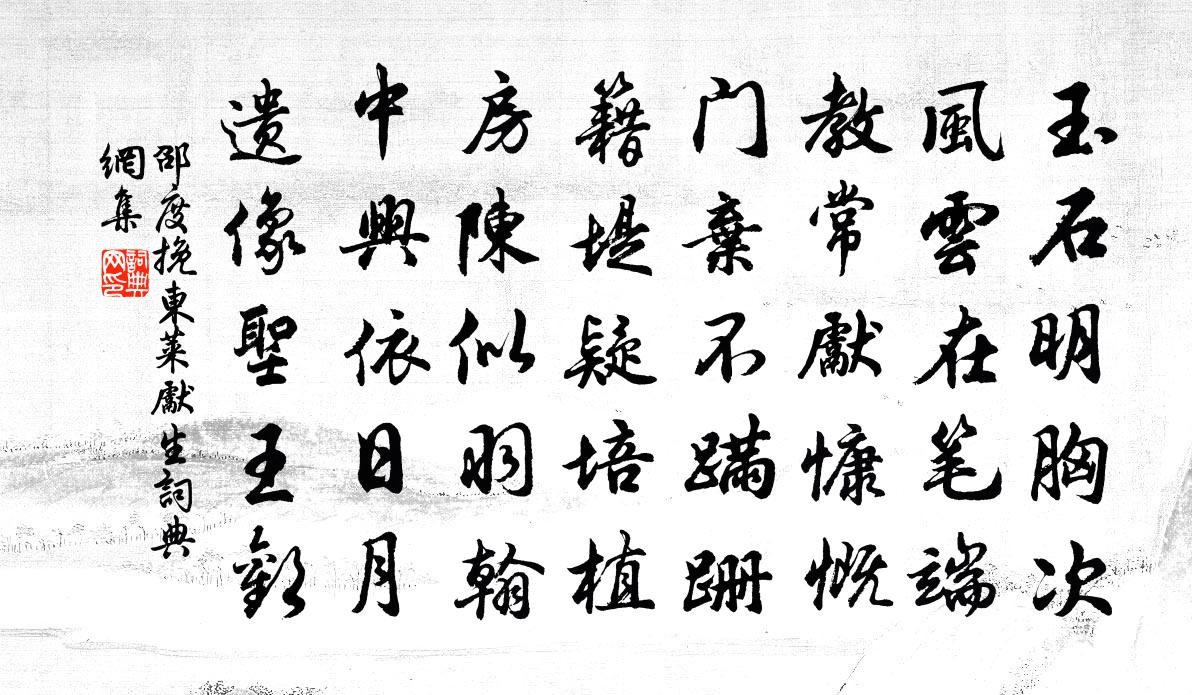 玉石明胸次
風雲在笔端
教常獻慷慨
门棄不蹒跚
籍堤疑培植
房陳似羽翰
中興依日月
遗像聖王歡
邵度挽東萊獻生詞典
網集
詞典
网印